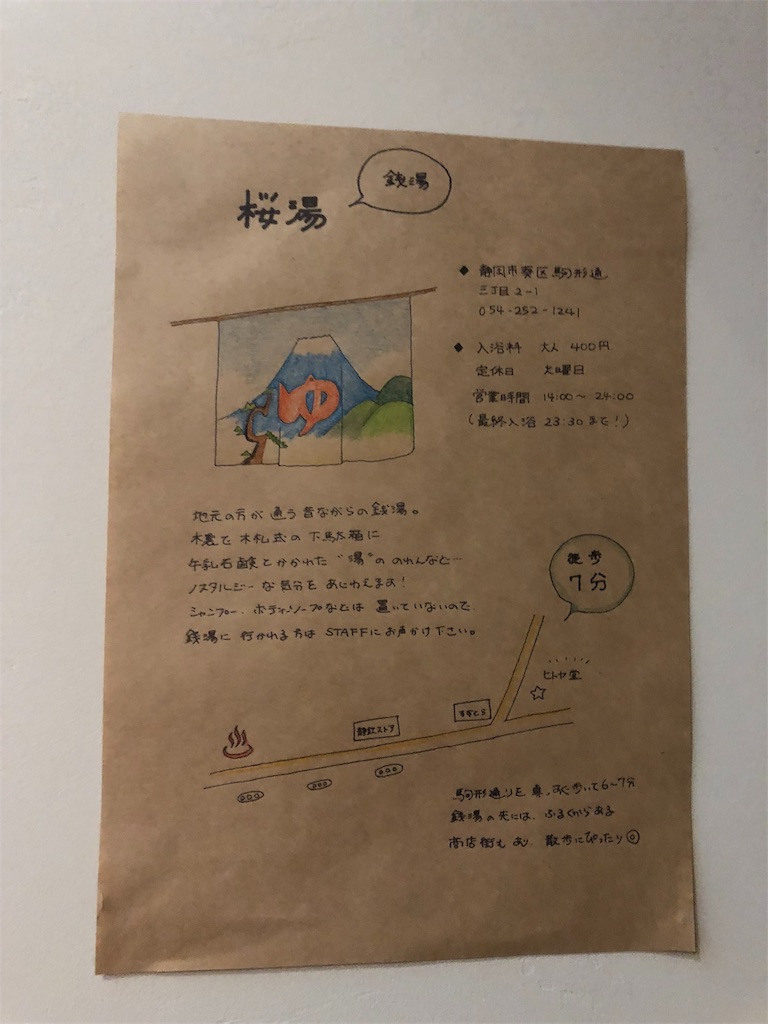 銭湯
桜湯
◆ 静岡市葵区駒形通
三丁目2-1
054-252-1241
◆ 入浴料 大人 400円
定休日 火曜日
営業時間 14:00〜24:00
(最終入浴 23:30まで!)
ゆ
地元の方が通う昔ながらの銭湯。
木札式の下駄箱に
牛乳石鹸とかかれた"湯"ののれんなど…
ノスタルジーな気分をあじわえます!
シャンプー、ボディソープなどは置いていないので、
銭湯に行かれる方はSTAFFにお声かけ下さい。
徒歩
7分
ヒトヤ堂
静鉄ストア
駒形通りを真っすぐ歩いて6〜7分
銭湯の先には、ふるくからある
商店街もあり 散歩にぴったり◎